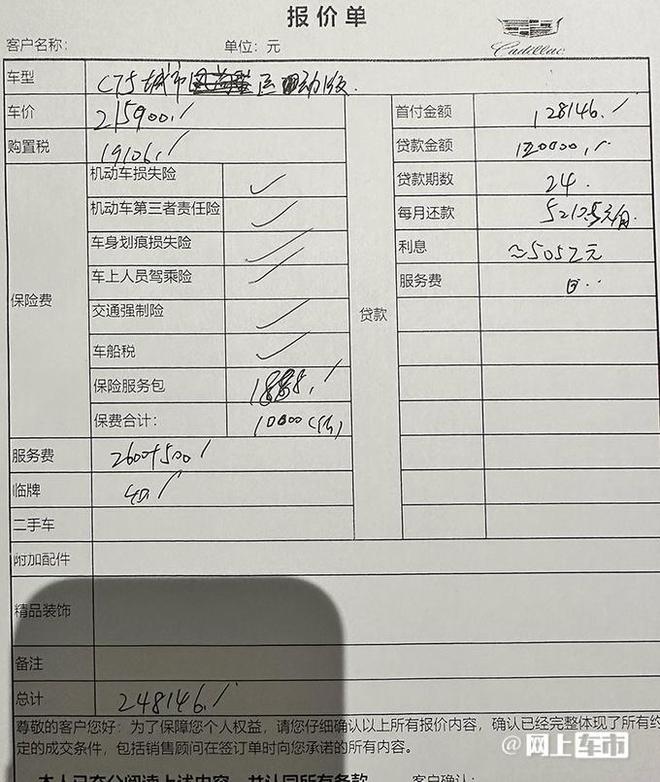 报价单
Cadillac
客户名称： 单位：元
车型 CT5城市 区 动版.
车价 215900./ 首付金额 128146./
购置税 19106./ 贷款金额 120000./
机动车损失险 ✓ 贷款期数 24.
机动车第三者责任险 ✓ 每月还款 5210.5元/月
车身划痕损失险 ✓ 利息 ≈5052元
车上人员驾乘险 ✓ 服务费 0..
保险费 交通强制险 ✓ 贷款
车船税 ✓
保险服务包 1888./
保费合计： 10000(估)
服务费 2600+500/
临牌 40./
二手车
附加配件
精品装饰
备注
总计 248146./
尊敬的客户您好：为了保障您个人权益，请您仔细确认以上所有报价内容，确认已经完整体现了所有约
定的成交条件，包括销售顾问在签订单时向您承诺的所有内容。
@网上车市
本人已充分阅读上述内容，并认同所有条款 客户确认：